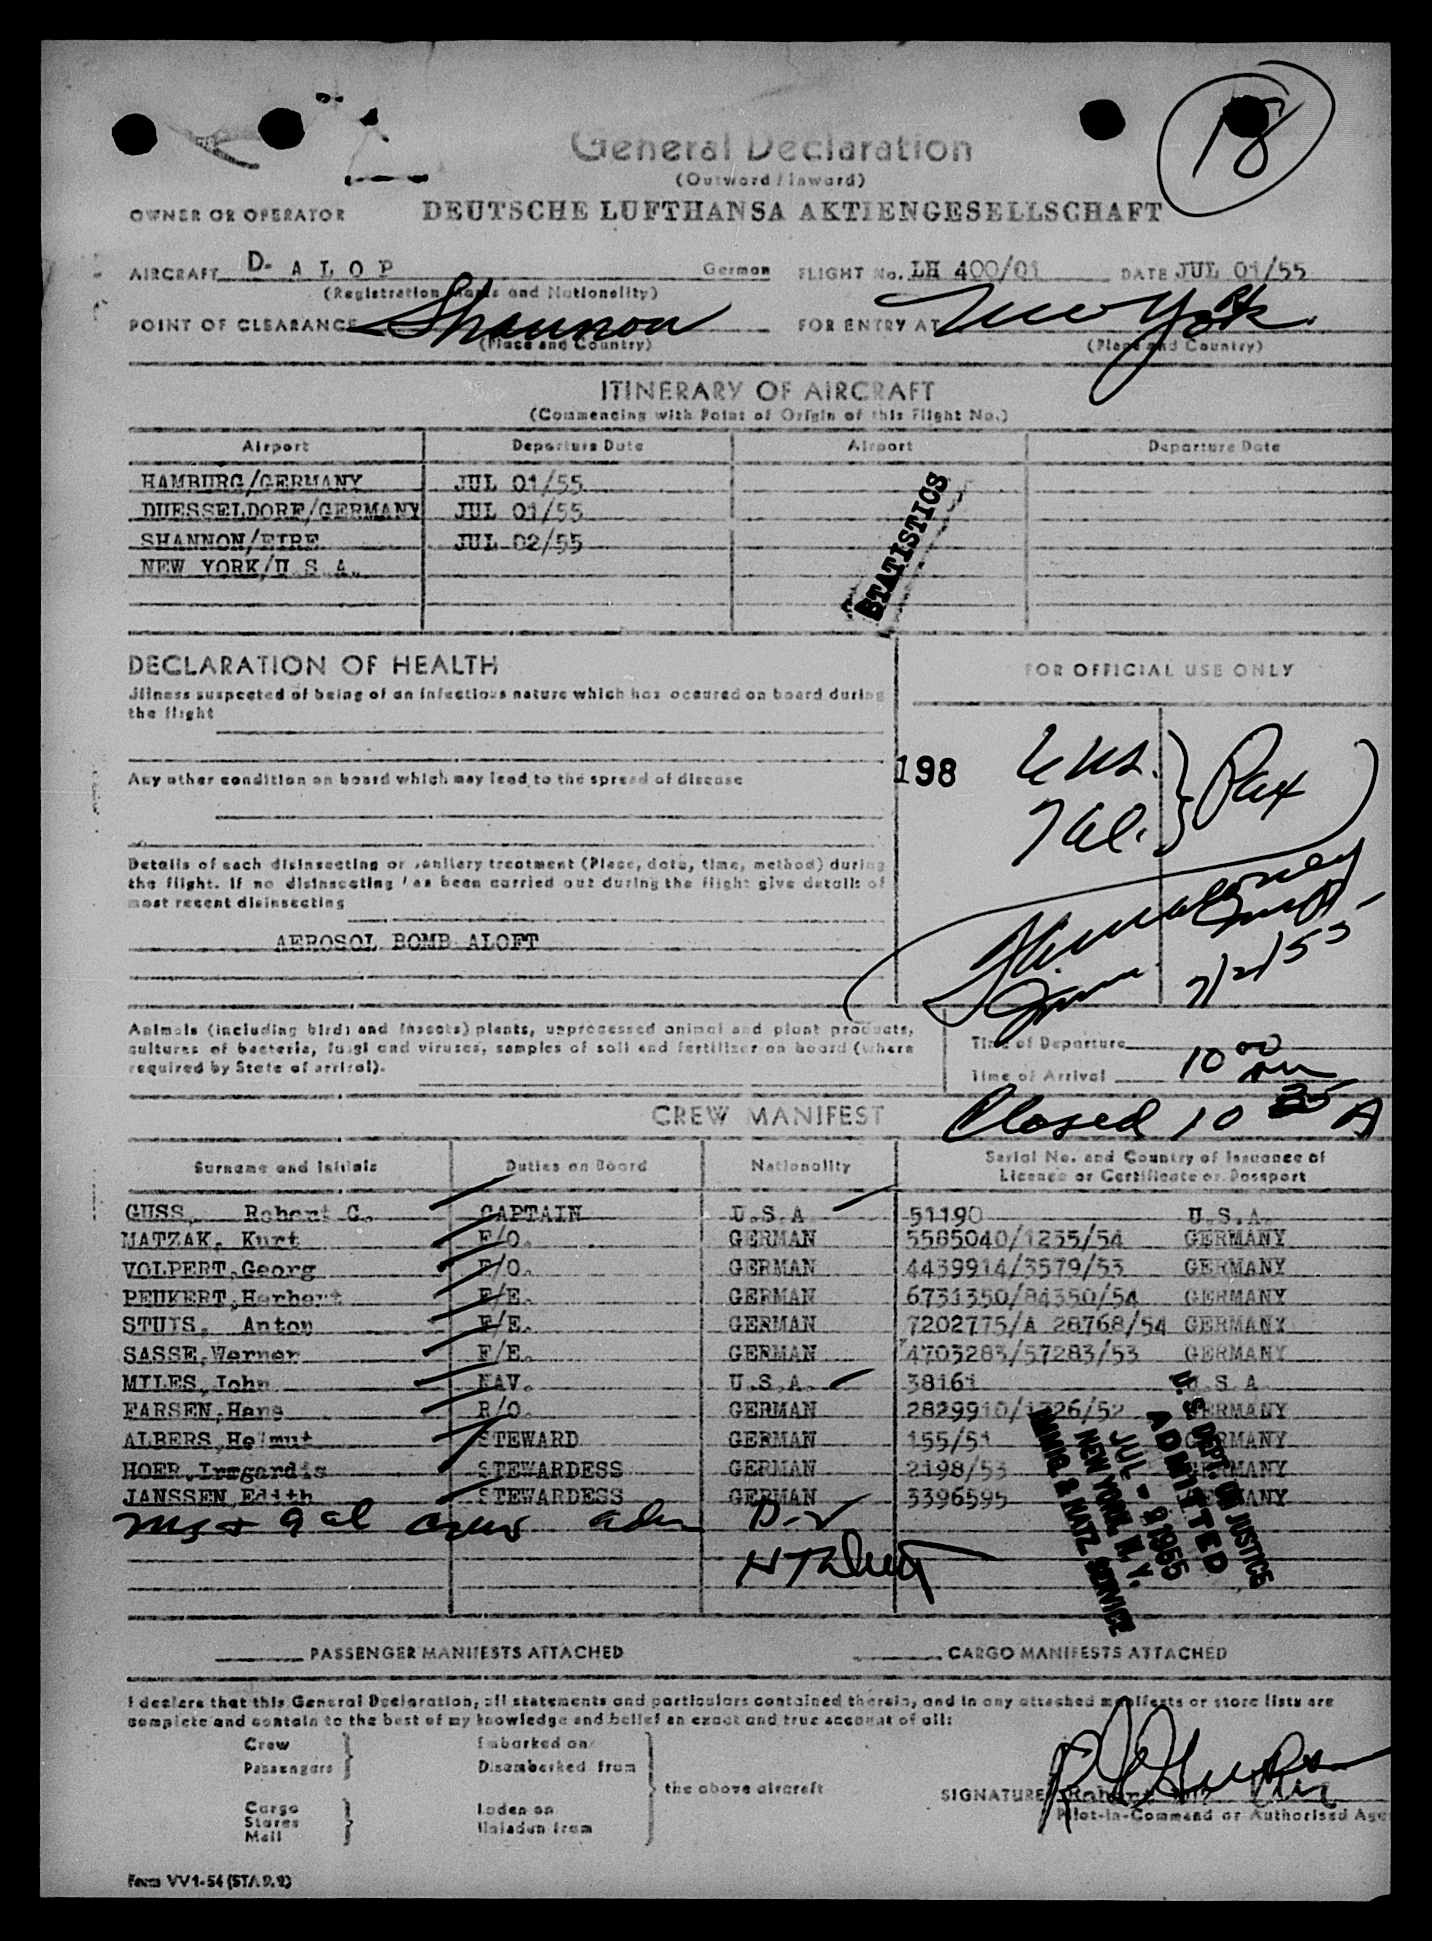 18
General Declaration
(Outward / Inward)
OWNER OR OPERATOR DEUTSCHE LUFTHANSA AKTIENGESELLSCHAFT
AIRCRAFT D- A L O P German FLIGHT No. LH 400/01 DATE JUL 01/55
(Registration Marks and Nationality)
POINT OF CLEARANCE Shannon FOR ENTRY AT New York
(Place and Country) (Place and Country)
ITINERARY OF AIRCRAFT
(Commencing with Point of Origin of this Flight No.)
Airport Departure Date Airport Departure Date
HAMBURG/GERMANY JUL 01/55
DUESSELDORF/GERMANY JUL 01/55
SHANNON/EIRE JUL 02/55
NEW YORK/U.S.A.
STATISTICS
DECLARATION OF HEALTH
FOR OFFICIAL USE ONLY
Illness suspected of being of an infectious nature which has occured on board during
the flight
Any other condition on board which may lead to the spread of disease
198
Pax
Details of each disinsecting or sanitary treatment (Place, date, time, method) during
the flight. If no disinsecting has been carried out during the flight give details of
most recent disinsecting
AEROSOL BOMB ALOFT
7/2/55
Animals (including birds and insects) plants, unprocessed animal and plant products,
cultures of bacteria, fungi and viruses, samples of soil and fertilizer on board (where
required by State of arrival).
Time of Departure
Time of Arrival 10 00 AM
CREW MANIFEST
Closed 10 A
Surname and Initials Duties on Board Nationality Serial No. and Country of Issuance of
Licence or Certificate or Passport
GUSS, Robert C. CAPTAIN U.S.A 51190 U.S.A.
MATZAK, Kurt F/O. GERMAN 5585040/1235/54 GERMANY
VOLPERT,Georg F/O. GERMAN 4439914/3579/53 GERMANY
PEUKERT,Herbert F/E. GERMAN 6731350/84350/54 GERMANY
STUIS, Anton F/E. GERMAN 7202775/A 28768/54 GERMANY
SASSE,Werner F/E. GERMAN 4703283/57283/53 GERMANY
MILES,John NAV. U.S.A. 38161 U.S.A
FARSEN,Hans R/O. GERMAN 2829910/1326/52 GERMANY
ALBERS,Helmut STEWARD GERMAN 155/51 GERMANY
HOER,Irmgardis STEWARDESS GERMAN 2198/53 GERMANY
JANSSEN,Edith STEWARDESS GERMAN 3396595 GERMANY
U. S. DEPT. OF JUSTICE
ADMITTED
JUL 1955
NEW YORK, N. Y.
IMMIG. & NATZ. SERVICE
PASSENGER MANIFESTS ATTACHED CARGO MANIFESTS ATTACHED
I declare that this General Declaration, all statements and particulars contained therein, and in any attached manifests or store lists are
complete and contain to the best of my knowledge and belief an exact and true account of all:
Crew Embarked on
Passengers Disembarked from
the above aircraft
Cargo Laden on
Stores Unladen from
Mail
SIGNATURE Robert
Pilot-in-Command or Authorised Age
Form VV 1-54 (STA 9.2)